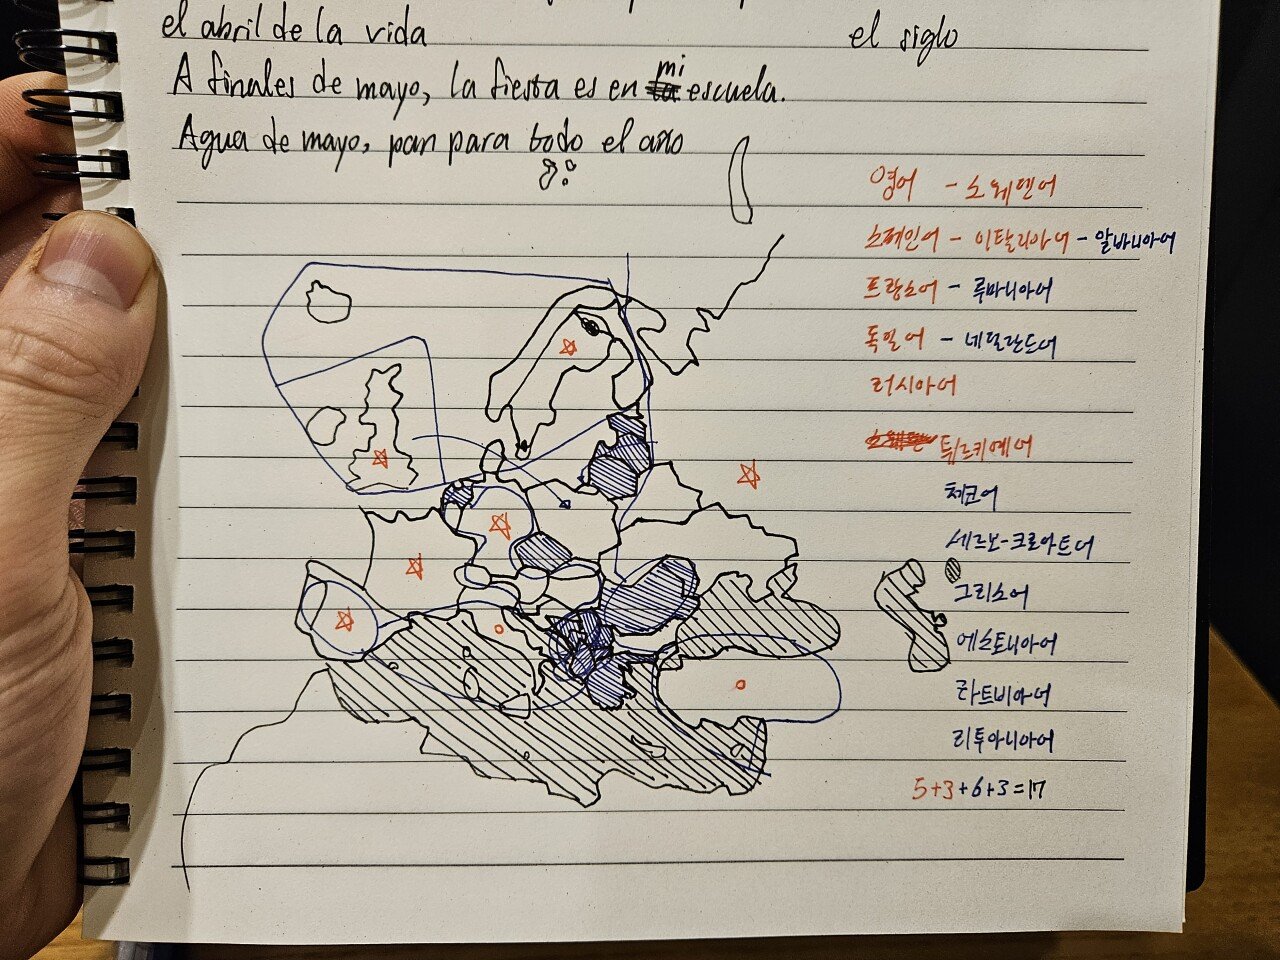 el abril de la vida
el siglo
A finales de mayo, la fiesta es en mi escuela.
Agua de mayo, pan para todo el año
영어 - 스웨덴어
스페인어 - 이탈리아어 - 알바니아어
프랑스어 - 루마니아어
독일어 - 네덜란드어
러시아어
튀르키예어
체코어
세르보-크로아트어
그리스어
에스토니아어
라트비아어
리투아니아어
5+3+6+3=17